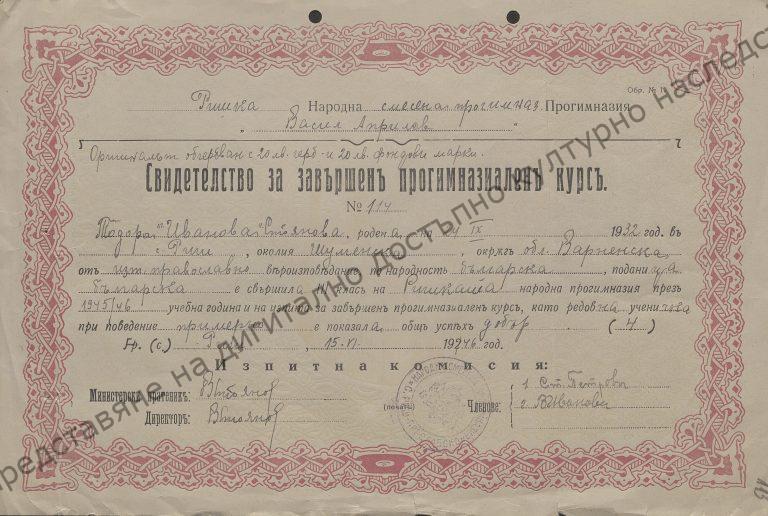 Обр. № 16
Ришка Народна смесена прогимназ. Прогимназия
„ Васил Априлов "
Оригиналът обгербван с 20 лв. герб. и 20 лв. фондови марки.
Свидетелство за завършенъ прогимназиаленъ курсъ.
№ 114
Тодора Иванова Стоянова, родена на IX 1932 год. въ
с. Риш, околия Шуменска, окрѫгъ обл. Варненска,
отъ изт. православно вѣроизповѣдание по народность българска, подани ца
българска е свършила III класъ на Ришката народна прогимназия презъ
1945/46 учебна година и на изпита за завършенъ прогимназиаленъ курсъ, като редовна учени чка
при поведение примерно е показала общъ успѣхъ добър (4)
Гр. (с.) Риш, 15.VI. 1946 год.
Изпитна комисия:
Министерски пратеникъ: В. Стоянов
Директоръ: В. Стоянов
(печатъ)
Членове: 1. Ст. Петрова
2. В. Иванова
представяне на дигитално достъпно културно наследство